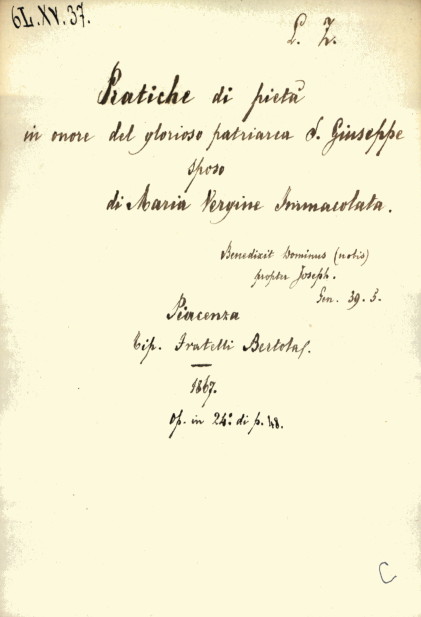 6L.XV.37.
L. Z.
Pratiche di pietà
in onore del glorioso patriarca S. Giuseppe
sposo
di Maria Vergine Immacolata.
Benedixit Dominus (nobis)
propter Joseph.
Gen. 39. 5.
Piacenza
Tip. Fratelli Bertola
1867.
Op. in 24° di p. 48.
C